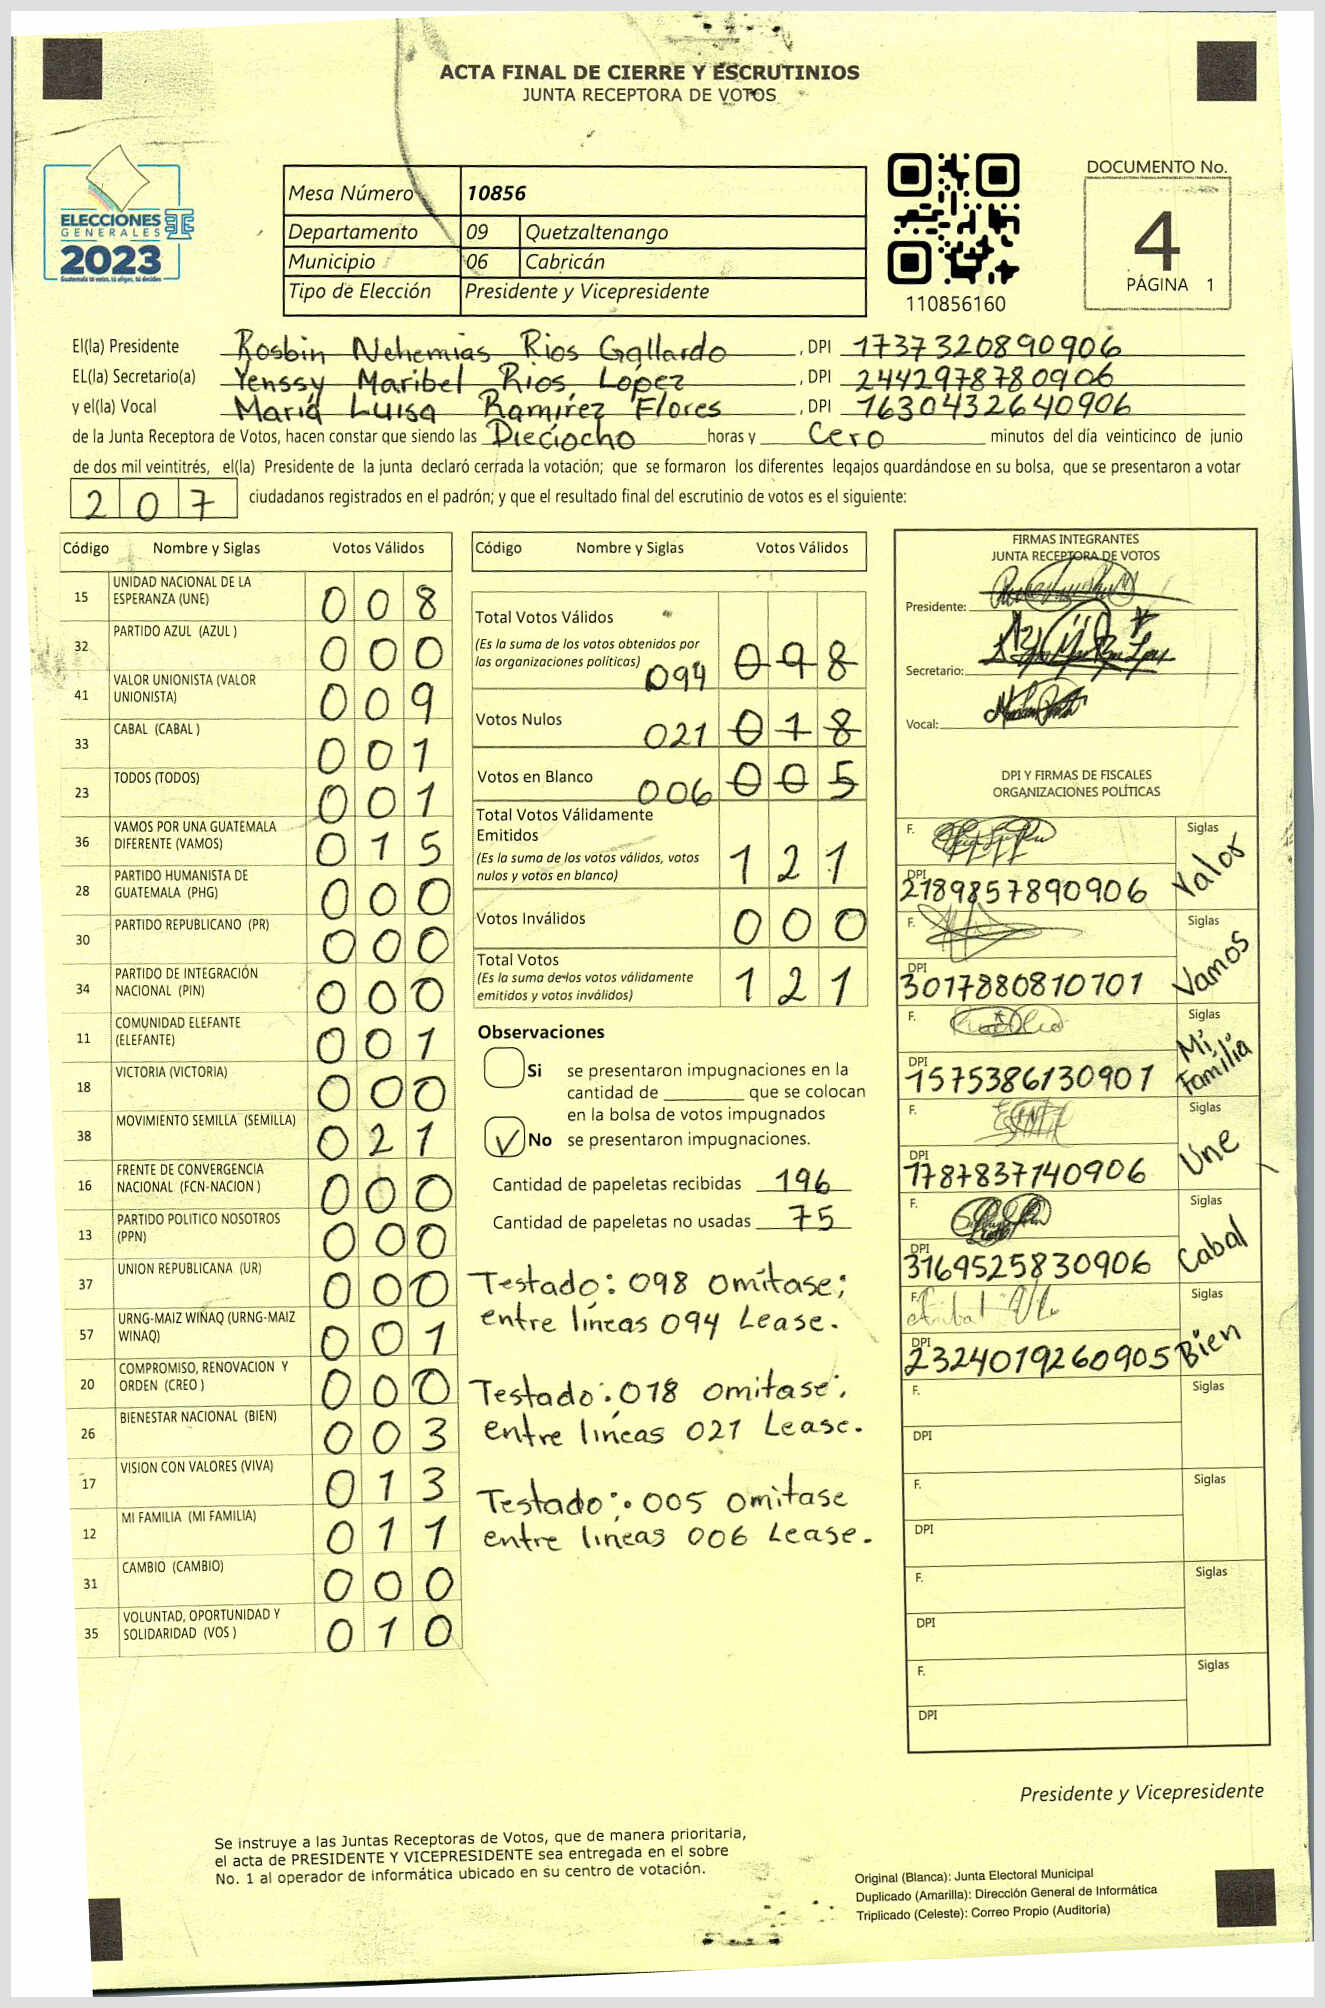 ACTA FINAL DE CIERRE Y ESCRUTINIOS
JUNTA RECEPTORA DE VOTOS
ELECCIONES
GENERALES
2023
Guatemala tú votas, tú eliges, tú decides
Mesa Número 10856
Departamento 09 Quetzaltenango
Municipio 06 Cabricán
Tipo de Elección Presidente y Vicepresidente
110856160
DOCUMENTO No.
4
PÁGINA 1
El(la) Presidente Rosbin Nehemias Rios Gallardo , DPI 1737320890906
EL(la) Secretario(a) Yenssy Maribel Rios López , DPI 2442978780906
y el(la) Vocal María Luisa Ramírez Flores , DPI 1630432640906
de la Junta Receptora de Votos, hacen constar que siendo las Dieciocho horas y Cero minutos del día veinticinco de junio
de dos mil veintitrés, el(la) Presidente de la junta declaró cerrada la votación; que se formaron los diferentes legajos quardándose en su bolsa, que se presentaron a votar
207 ciudadanos registrados en el padrón; y que el resultado final del escrutinio de votos es el siguiente:
Código Nombre y Siglas Votos Válidos
15 UNIDAD NACIONAL DE LA ESPERANZA (UNE) 008
32 PARTIDO AZUL (AZUL ) 000
41 VALOR UNIONISTA (VALOR UNIONISTA) 009
33 CABAL (CABAL ) 001
23 TODOS (TODOS) 001
36 VAMOS POR UNA GUATEMALA DIFERENTE (VAMOS) 015
28 PARTIDO HUMANISTA DE GUATEMALA (PHG) 000
30 PARTIDO REPUBLICANO (PR) 000
34 PARTIDO DE INTEGRACIÓN NACIONAL (PIN) 000
11 COMUNIDAD ELEFANTE (ELEFANTE) 001
18 VICTORIA (VICTORIA) 000
38 MOVIMIENTO SEMILLA (SEMILLA) 021
16 FRENTE DE CONVERGENCIA NACIONAL (FCN-NACION ) 000
13 PARTIDO POLITICO NOSOTROS (PPN) 000
37 UNION REPUBLICANA (UR) 000
57 URNG-MAIZ WINAQ (URNG-MAIZ WINAQ) 001
20 COMPROMISO, RENOVACION Y ORDEN (CREO ) 000
26 BIENESTAR NACIONAL (BIEN) 003
17 VISION CON VALORES (VIVA) 013
12 MI FAMILIA (MI FAMILIA) 011
31 CAMBIO (CAMBIO) 000
35 VOLUNTAD, OPORTUNIDAD Y SOLIDARIDAD (VOS ) 010
Código Nombre y Siglas Votos Válidos
Total Votos Válidos
(Es la suma de los votos obtenidos por
las organizaciones políticas) 094 098
Votos Nulos 021 018
Votos en Blanco 006 005
Total Votos Válidamente
Emitidos
(Es la suma de los votos válidos, votos
nulos y votos en blanco) 121
Votos Inválidos 000
Total Votos
(Es la suma de los votos válidamente
emitidos y votos inválidos) 121
Observaciones
Si se presentaron impugnaciones en la
cantidad de ________ que se colocan
en la bolsa de votos impugnados
No se presentaron impugnaciones.
Cantidad de papeletas recibidas 196
Cantidad de papeletas no usadas 75
Testado: 098 omítase;
entre líneas 094 Lease.
Testado: 018 omitase;
entre líneas 021 Lease.
Testado: 005 omitase
entre líneas 006 Lease.
FIRMAS INTEGRANTES
JUNTA RECEPTORA DE VOTOS
Presidente:
Secretario:
Vocal:
DPI Y FIRMAS DE FISCALES
ORGANIZACIONES POLÍTICAS
F. Siglas
DPI 2189857890906 Valor
F. Siglas
DPI 3017880810101 Vamos
F. Siglas
DPI 1575386130901 Mi Familia
F. Siglas
DPI 1787837140906 Une
F. Siglas
DPI 3169525830906 Cabal
F. Siglas
DPI 2324019260905 Bien
F. Siglas
DPI
F. Siglas
DPI
F. Siglas
DPI
F. Siglas
DPI
Presidente y Vicepresidente
Se instruye a las Juntas Receptoras de Votos, que de manera prioritaria,
el acta de PRESIDENTE Y VICEPRESIDENTE sea entregada en el sobre
No. 1 al operador de informática ubicado en su centro de votación.
Original (Blanca): Junta Electoral Municipal
Duplicado (Amarilla): Dirección General de Informática
Triplicado (Celeste): Correo Propio (Auditoría)